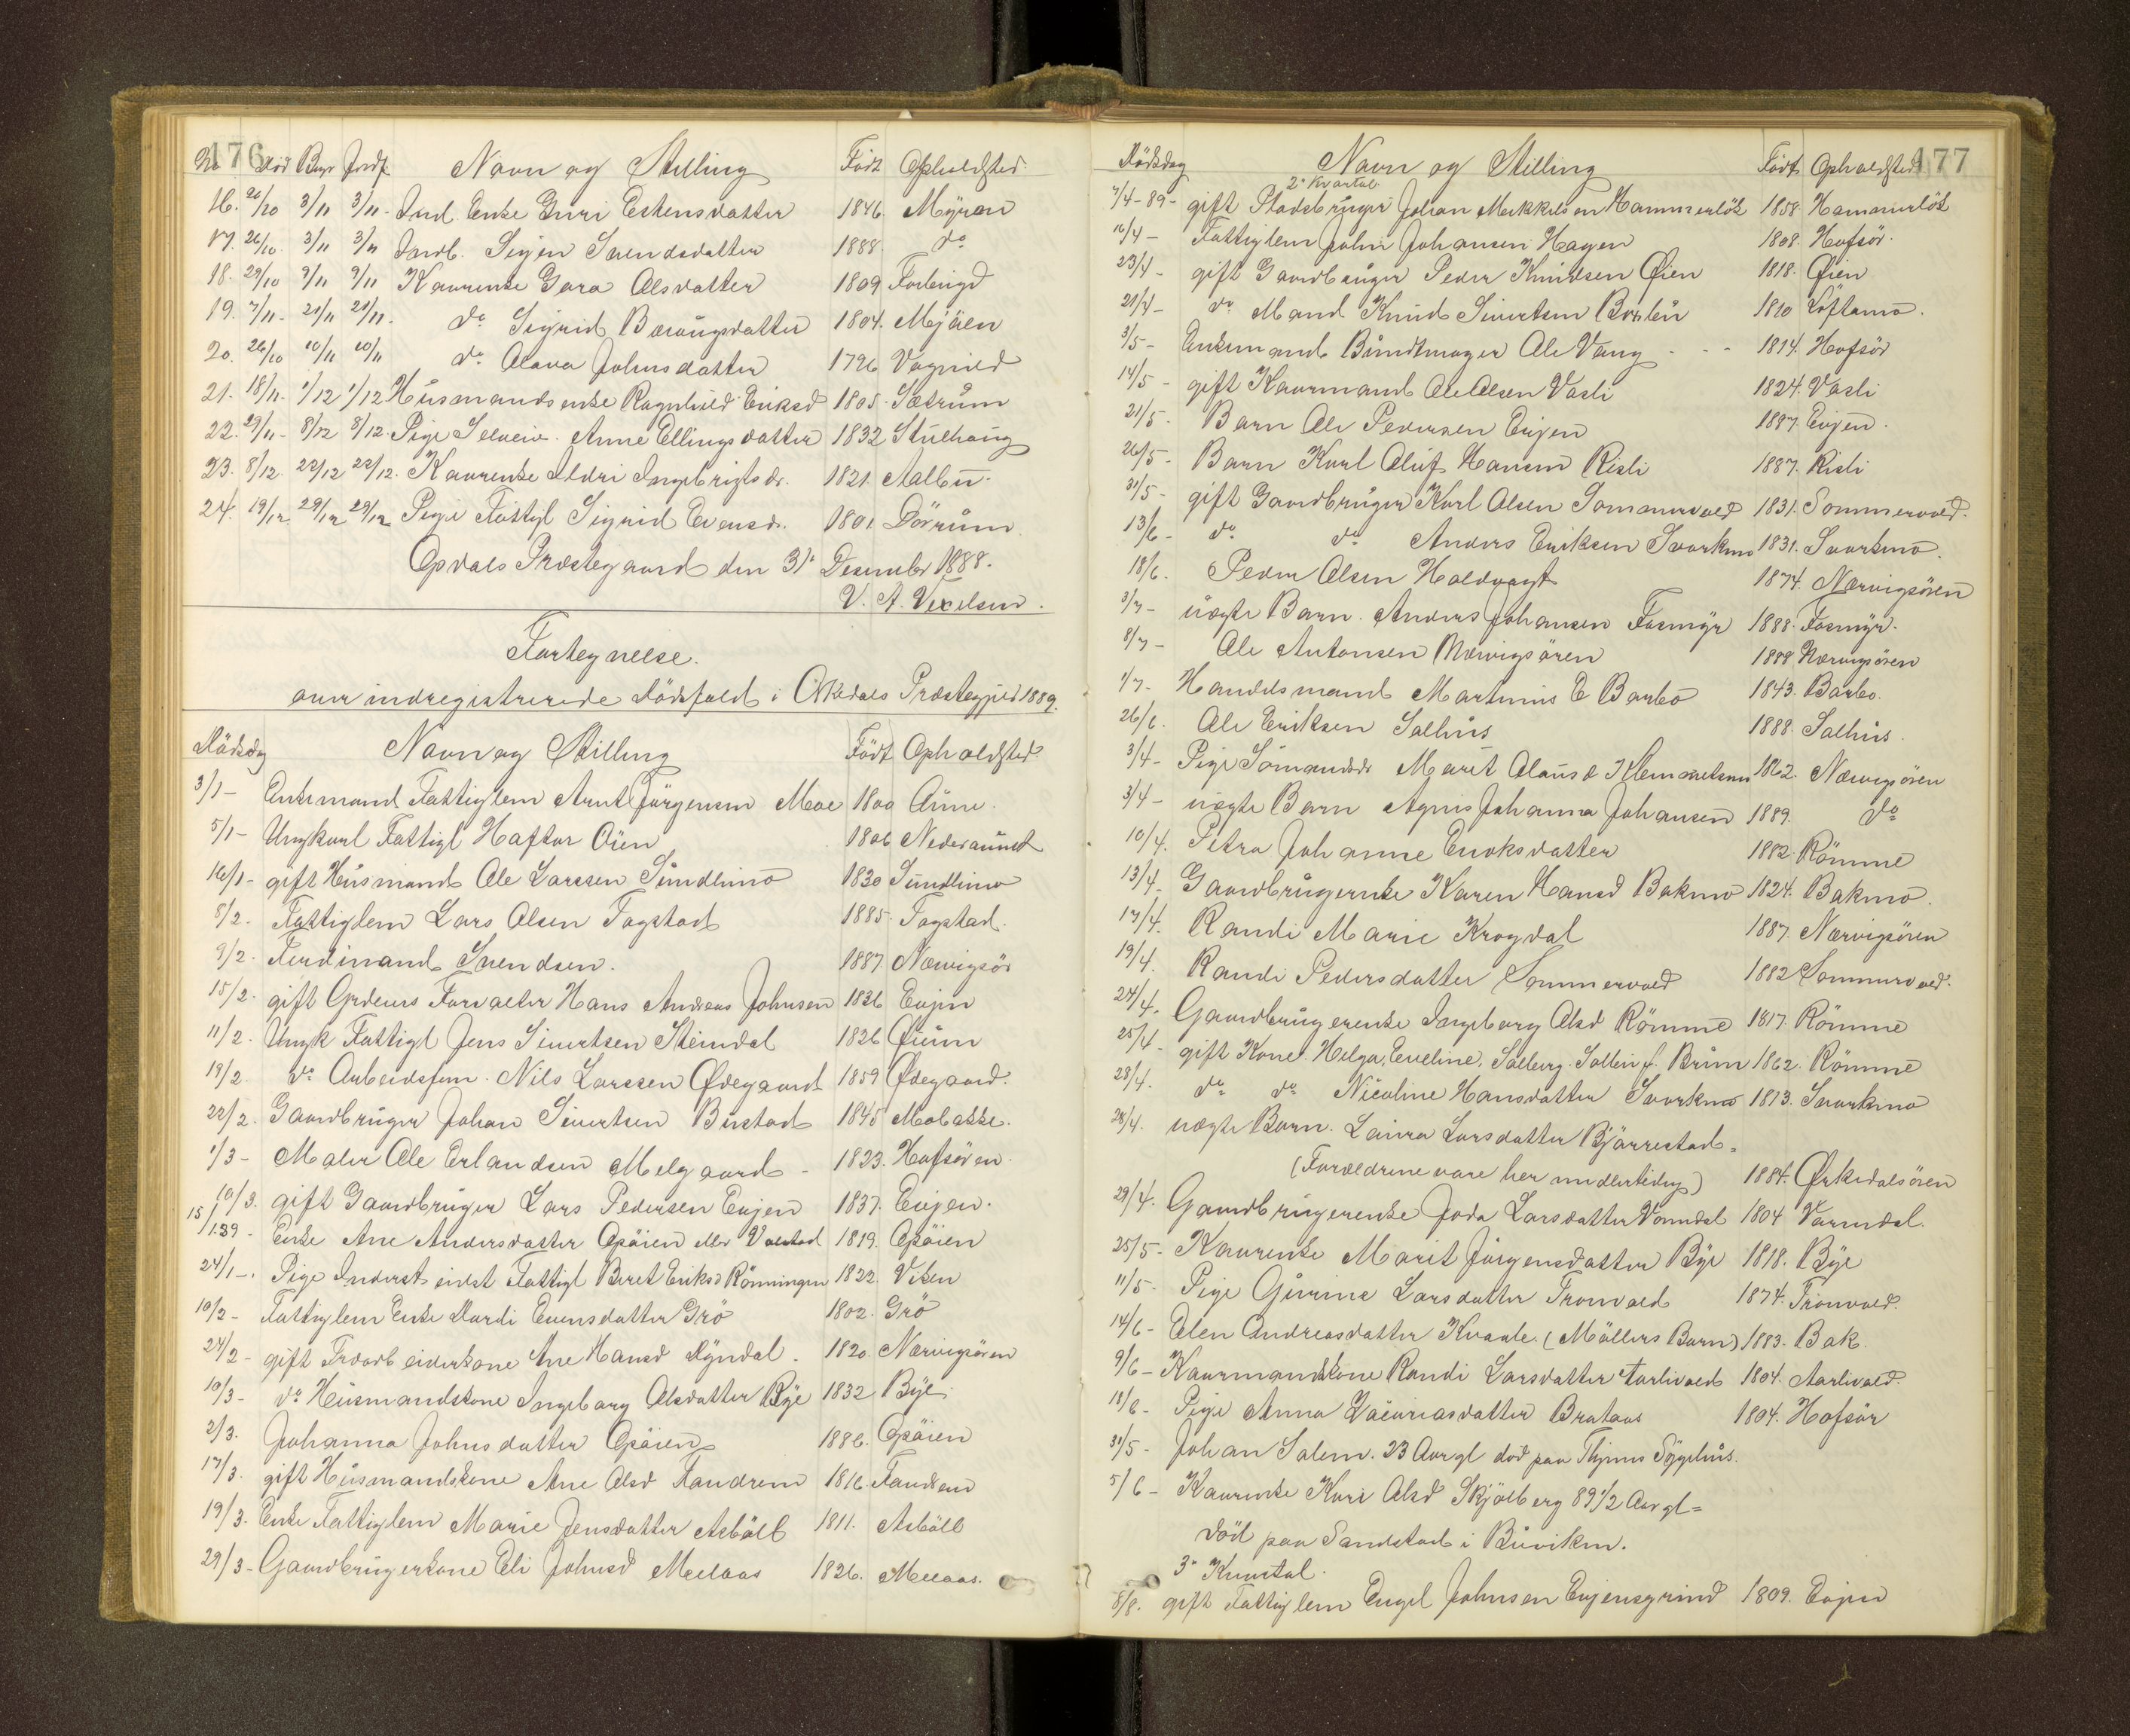 176
No Död Begr Jordf. Navn og Stilling Födt Opholdsted.
16. 20/10 3/11 3/11 - Ind. Enke Guri Estensdatter 1846. Mÿran
17. 26/10. 3/11 3/11 Indb. Sigen Svendsdatter 1888. do
18. 29/10 9/11 9/11 Kaarenke Gora Olsdatter 1809
19. 7/11 - 21/11 21/11. do Sigrid 1804. Mjöen
20. 26/10 10/11 10/11 do Olava Johnsdatter 1796 Vognild
21. 18/11. 1/12 1/12 Hüsmandsenke Ragnhild Eriksd 1805. Sætrüm
22. 29/11 - 8/12 8/12. Pige Selveie. Anne Ellingsdatter 1832 Stülhaüg
23. 8/12. 22/12 22/12. Kaarenke Ildri Ingebrigtsdr. 1821. Aalbü.
24. 19/12 29/12 29/12 Pige Fattigl Sigrid Evensd. 1801. Dörrüm
Opdals Præstegaard den 31te Desember 1888.
V. A. Vexelsen.
Fortegnelse.
over indregistrerede Dödsfald i Orkedals Præstegjeld 1889.
Dödsdag Navn og Stilling Födt Opholdsted
3/1 - Enkemand Fattiglem Arnt Jörgensen Moe 1800 Aüne.
5/1 - Ungkarl Fattigl Haftor Öien 1806 Nederaünet
16/1 - gift Hüsmand Ole Larssen Sündlimo 1830 Sündlimo
8/2. Fattiglem Lars Olsen Fagstad 1885. Fagstad.
9/2. Ferdinand Svendsen. 1887. Nærvigsör
15/2. gift Forvalter Hans Andreas Johnsen 1836 Evjen
11/2. Ungk Fattigl Jens Sivertsen Steindal 1826
19/2. do Arbeidsfom. Nils Larssen Ödegaard 1859 Ödegaard.
22/2. Gaardbrüger Johan Sivertsen Büstad 1845
1/3 - Maler Ole Erlandsen Melgaard - 1823. Hofsören.
10/3. gift Gaardbrüger Lars Pedersen Evjen 1837. Evjen.
15/1.89 - Enke Ane Andersdatter Opöien eller 1819. Opöien
24/1 -. Pige Inderst Fattigl Beret Eriksd Rönningen 1822.
10/2 - Fattiglem Enke Mardi Evensdatter Grö 1802. Grö
24/2 - gift Ane Hansd Dÿrdal - 1820. Nærvigsören
10/3 - do Hüsmandskone Ingeborg Olsdatter Bÿe 1832 Bÿe
2/3. Johanna Johnsdatter Opöien 1886. Opöien
17/3. gift Hüsmandskone Ane Olsd Fandrem 1816. Fandrem
19/3. Enke Fattiglem Marie Jensdatter Asböll 1811. Asböll
29/3 - Gaardbrügerkone Eli Johnsd Meelaas 1826. Meeaas.
177
Dödsdag Navn og Stilling Födt Opholdsted
2det Kvartal
7/4 - 89 - gift Pladsbrüger Johan Mekkelsen Hammerlök 1858. Hammerlök
16/4 - Fattiglem John Johansen Hagen 1808. Hofsör.
23/4 - gift Gaardbrüger Peder Knüdsen Öien 1818. Öien
21/4 - do Mand Knüd Sivertsen 1810 Löftamo.
3/5 - Enkemand Büntmager Ole Vang - - - 1814. Hofsör
14/5 - gift Kaarmand Ole Olsen Vasli 1824. Vasli
21/5. Barn Ole Pedersen Evjen 1887. Evjen.
26/5 - Barn Karl Olüf Hansen Risli 1887. Risli
31/5 - gift Gaardbrüger Karl Olsen Sommervold 1831. Sommervold.
13/6 - do do Anders Eriksen Svorkmo 1831. Svorkmo.
18/6. Peder Olsen Holdvagt 1874. Nærvigsören
3/7 - uægte Barn. Anders Johansen Fosmÿr 1888. Fosmÿr.
8/7 - Ole Antonsen Nærvigsören 1888 Nærvigsören
1/7. Handelsmand Martinüs E Barbo 1843. Barbo.
26/6. Ole Eriksen Solhüs 1888. Solhüs.
3/4 - Pige Sömandsdr Marit Olaüsd Klemmetsmo 1862. Nærvigsören
3/4 - uægte Barn Agnes Johanna Johansen 1889. do
10/4. Petra Johanne Enoksdatter 1882. Römme
13/4. Gaardbrügerenke Karen Hansd Bakmo 1824. Bakmo.
17/4. Randi Marie Krogdal 1887. Nærvigsören
19/4. Randi Pedersdatter Sommervold 1882 Sommervold.
24/4. Gaardbrügerenke Ingeborg Olsd Römme 1817. Römme
25/4 - gift Kone. Helga, Eveline, Solberg. f. Brün 1862. Römme
28/4. do do Nicoline Hansdatter Svorkmo 1813. Svorkmo
28/4. uægte Barn. Laura Larsdatter Björrestad.
(Foræeldrene vare her midlertidig) 1884. Örkedalsören
29/4. Gaardbrügerenke Joda Larsdatter Vormdal 1804 Vormdal.
25/5 - Kaarenke Marit Jörgensdatter Bÿe 1818. Bÿe
11/5 - Pige Gürine Larsdatter Tronvold 1874. Tronvold.
14/6 - Elen Andreasdatter Kvaale. (Möllers Barn) 1883. Bak.
9/6 - Kaarmandskone Randi Larsdatter Aarlivold 1804. Aarlivold.
18/6 - Pige Anna Brataas 1804. Hofsör
31/5 - Johan Solem. 23 Aar gl död paa Thjems Sÿgehüs.
5/6 - Kaarenke Kari Olsd Skjölberg 89 1/2 Aar gl =
död paa Sandstad i Büviken.
3die Kvartal.
8/8. gift Fattiglem Engel Johnsen Evjensgrind 1809. Evjen